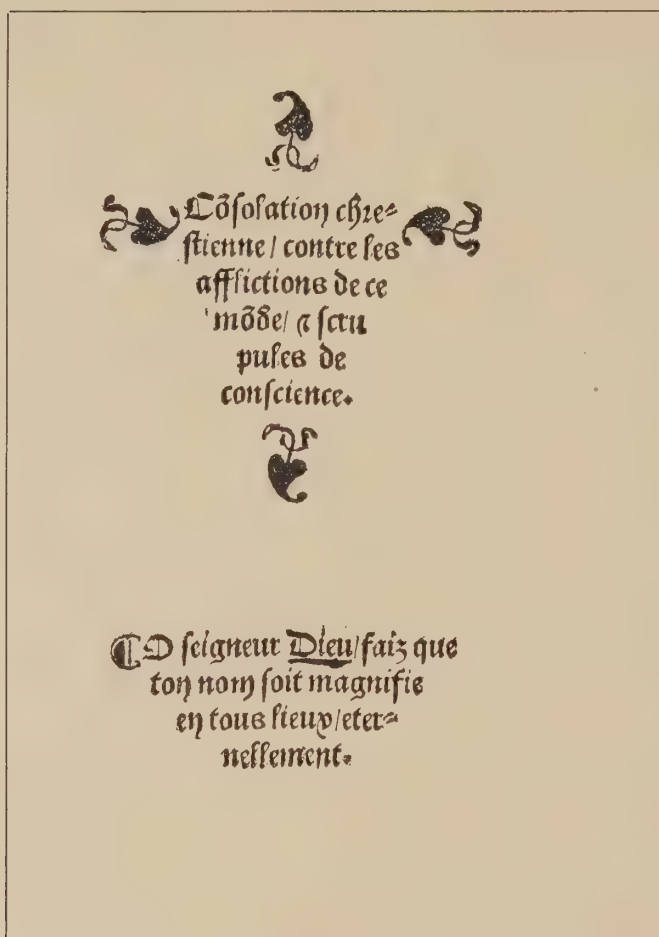 Cõsolation chre⸗
stienne / contre les
afflictions de ce
mõde / ⁊ scru
pules de
conscience.
¶ O seigneur Dieu / faiz que
ton nom soit magnifie
en tous lieux / eter⸗
nellement.